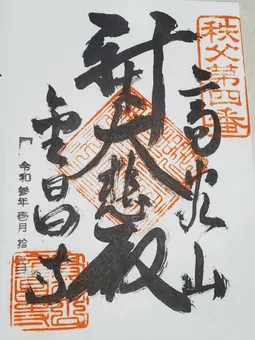 秩父第四番
高谷山
大悲殿
金昌寺
令和参年壱月拾